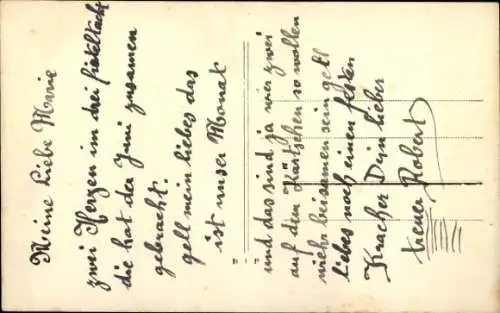 Meine Liebe Mennie
zwei Herzen im drei fiteltackt
die hat der Juni zusamen
gebracht.
gell mein liebes das
ist unser Monat
und das sind ja wier zwei
auf dem Kärtschen so wollen
wiehr beisamen sein gell
liebes noch einen festen
Kracher Dein lieber
treuer Robert